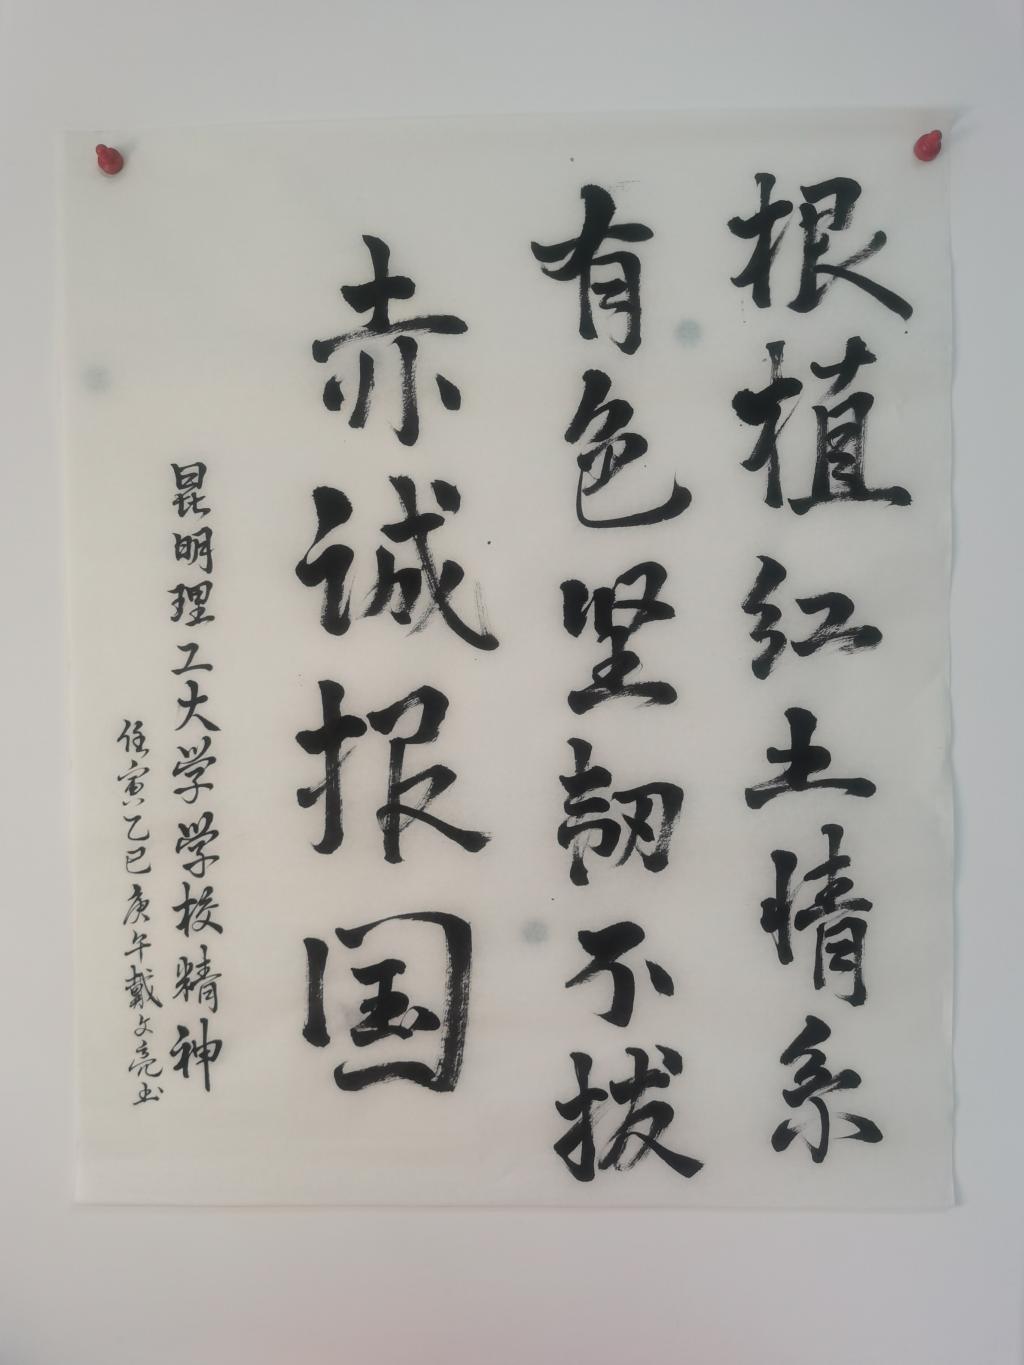 根植红土情系
有色坚韧不拔
赤诚报国
昆明理工大学学校精神
任寅乙巳庚午戴文亮书